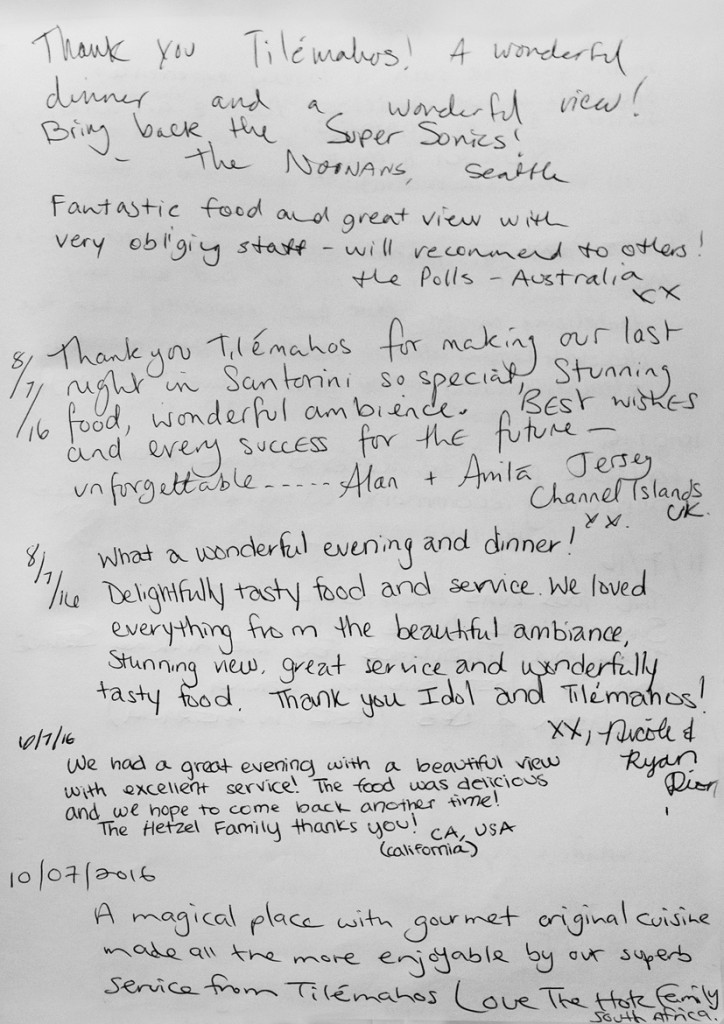 Thank you Tilémahos! A wonderful
dinner and a wonderful view!
Bring back the Super Sonics!
- the Noonans, Seattle
Fantastic food and great view with
very obliging staff - will recommend to others!
the Polls - Australia
xx
8/7/16 Thank you Tilémahos for making our last
night in Santorini so special, Stunning
food, wonderful ambience. BEST wishes
and every success for the future —
unforgettable ----- Alan + Anila Jersey
Channel Islands
UK.
xx.
8/7/16 What a wonderful evening and dinner!
Delightfully tasty food and service. We loved
everything from the beautiful ambiance,
stunning view, great service and wonderfully
tasty food. Thank you Idol and Tilémahos!
XX, Nicole &
Ryan
6/7/16
We had a great evening with a beautiful view
with excellent service! The food was delicious
and we hope to come back another time!
The Hetzel Family thanks you! CA, USA
(California)
10/07/2016
A magical place with gourmet original cuisine
made all the more enjoyable by our superb
service from Tilémahos Love The Family
South Africa.